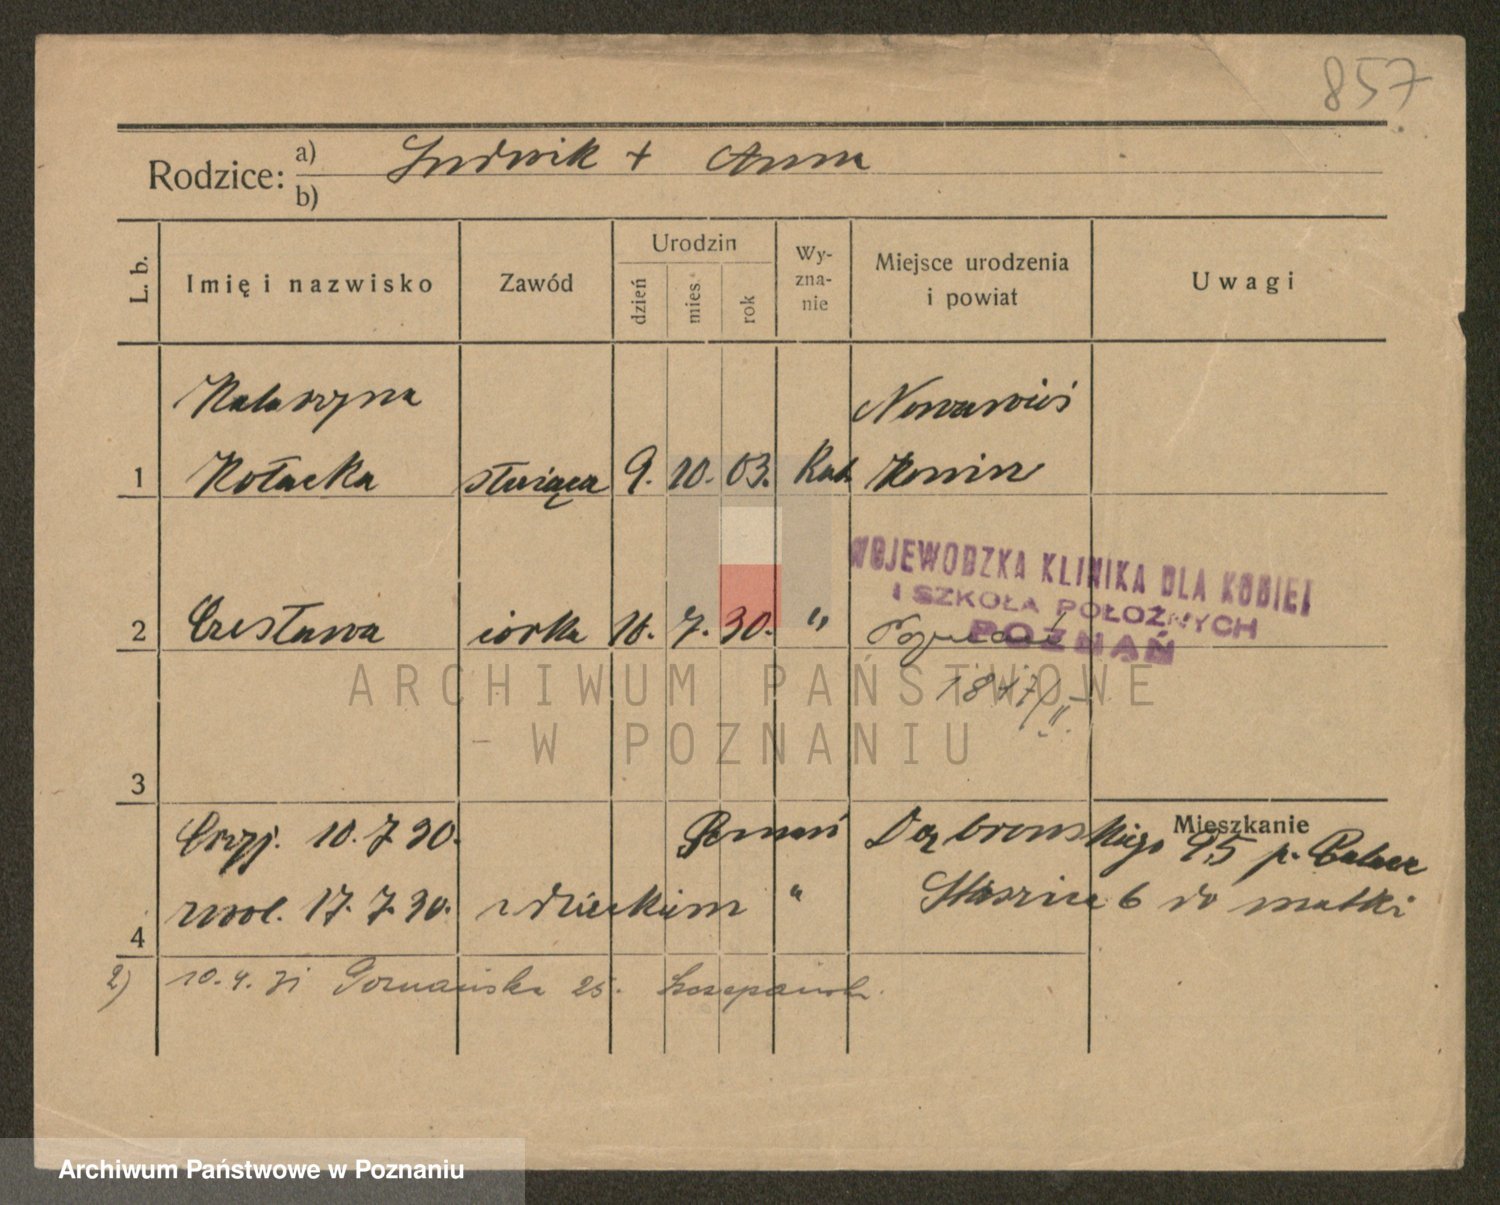 857
Rodzice: a) Ludwik + Anna
b)
L. b. Imię i nazwisko Zawód Urodzin dzień mies. rok Wy-zna-nie Miejsce urodzenia i powiat Uwagi
Katarzyna Nowawieś
1 Kołacka służąca 9. 10. 03. Kat. Konin
WOJEWODZKA KLINIKA DLA KOBIET
I SZKOŁA POŁOŻNYCH
POZNAŃ
2 Czesława córka 10. 7. 30. " Poznań
1847/
ARCHIWUM PAŃSTWOWE
W POZNANIU
3
Mieszkanie
10. 7 30. Poznań Dąbrowskiego 95 p.
4 17. 7. 30. z dzieckiem " Staszica 6 do matki
2) 10. 4. 31 Poznańska 25. Szczepaniak
Archiwum Państwowe w Poznaniu